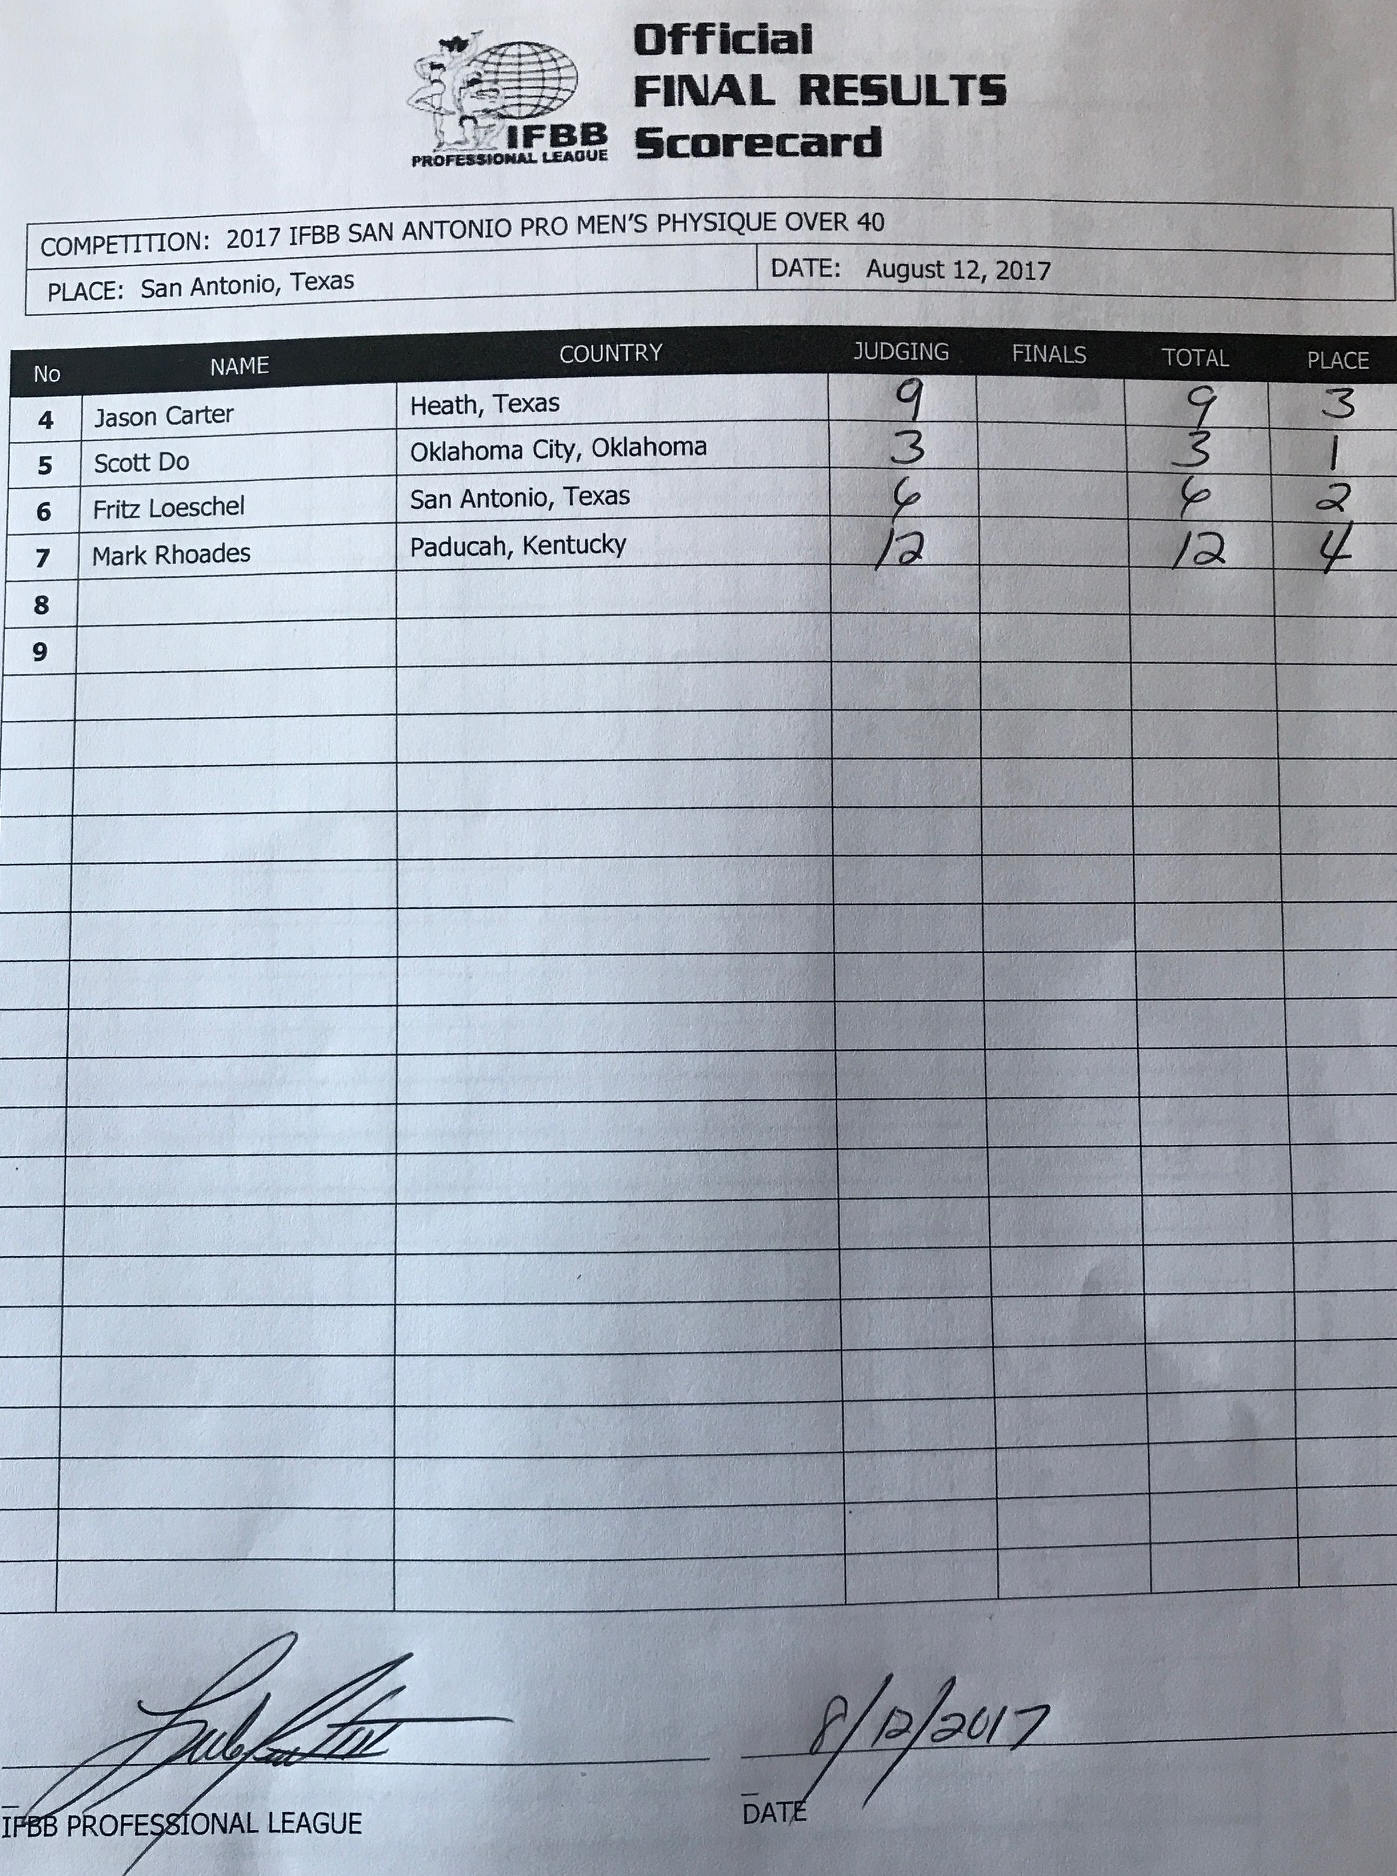 Official
FINAL RESULTS
Scorecard
IFBB
PROFESSIONAL LEAGUE
COMPETITION: 2017 IFBB SAN ANTONIO PRO MEN'S PHYSIQUE OVER 40
PLACE: San Antonio, Texas DATE: August 12, 2017
No NAME COUNTRY JUDGING FINALS TOTAL PLACE
4 Jason Carter Heath, Texas 9 9 3
5 Scott Do Oklahoma City, Oklahoma 3 3 1
6 Fritz Loeschel San Antonio, Texas 6 6 2
7 Mark Rhoades Paducah, Kentucky 12 12 4
8
9
8/12/2017
IFBB PROFESSIONAL LEAGUE DATE